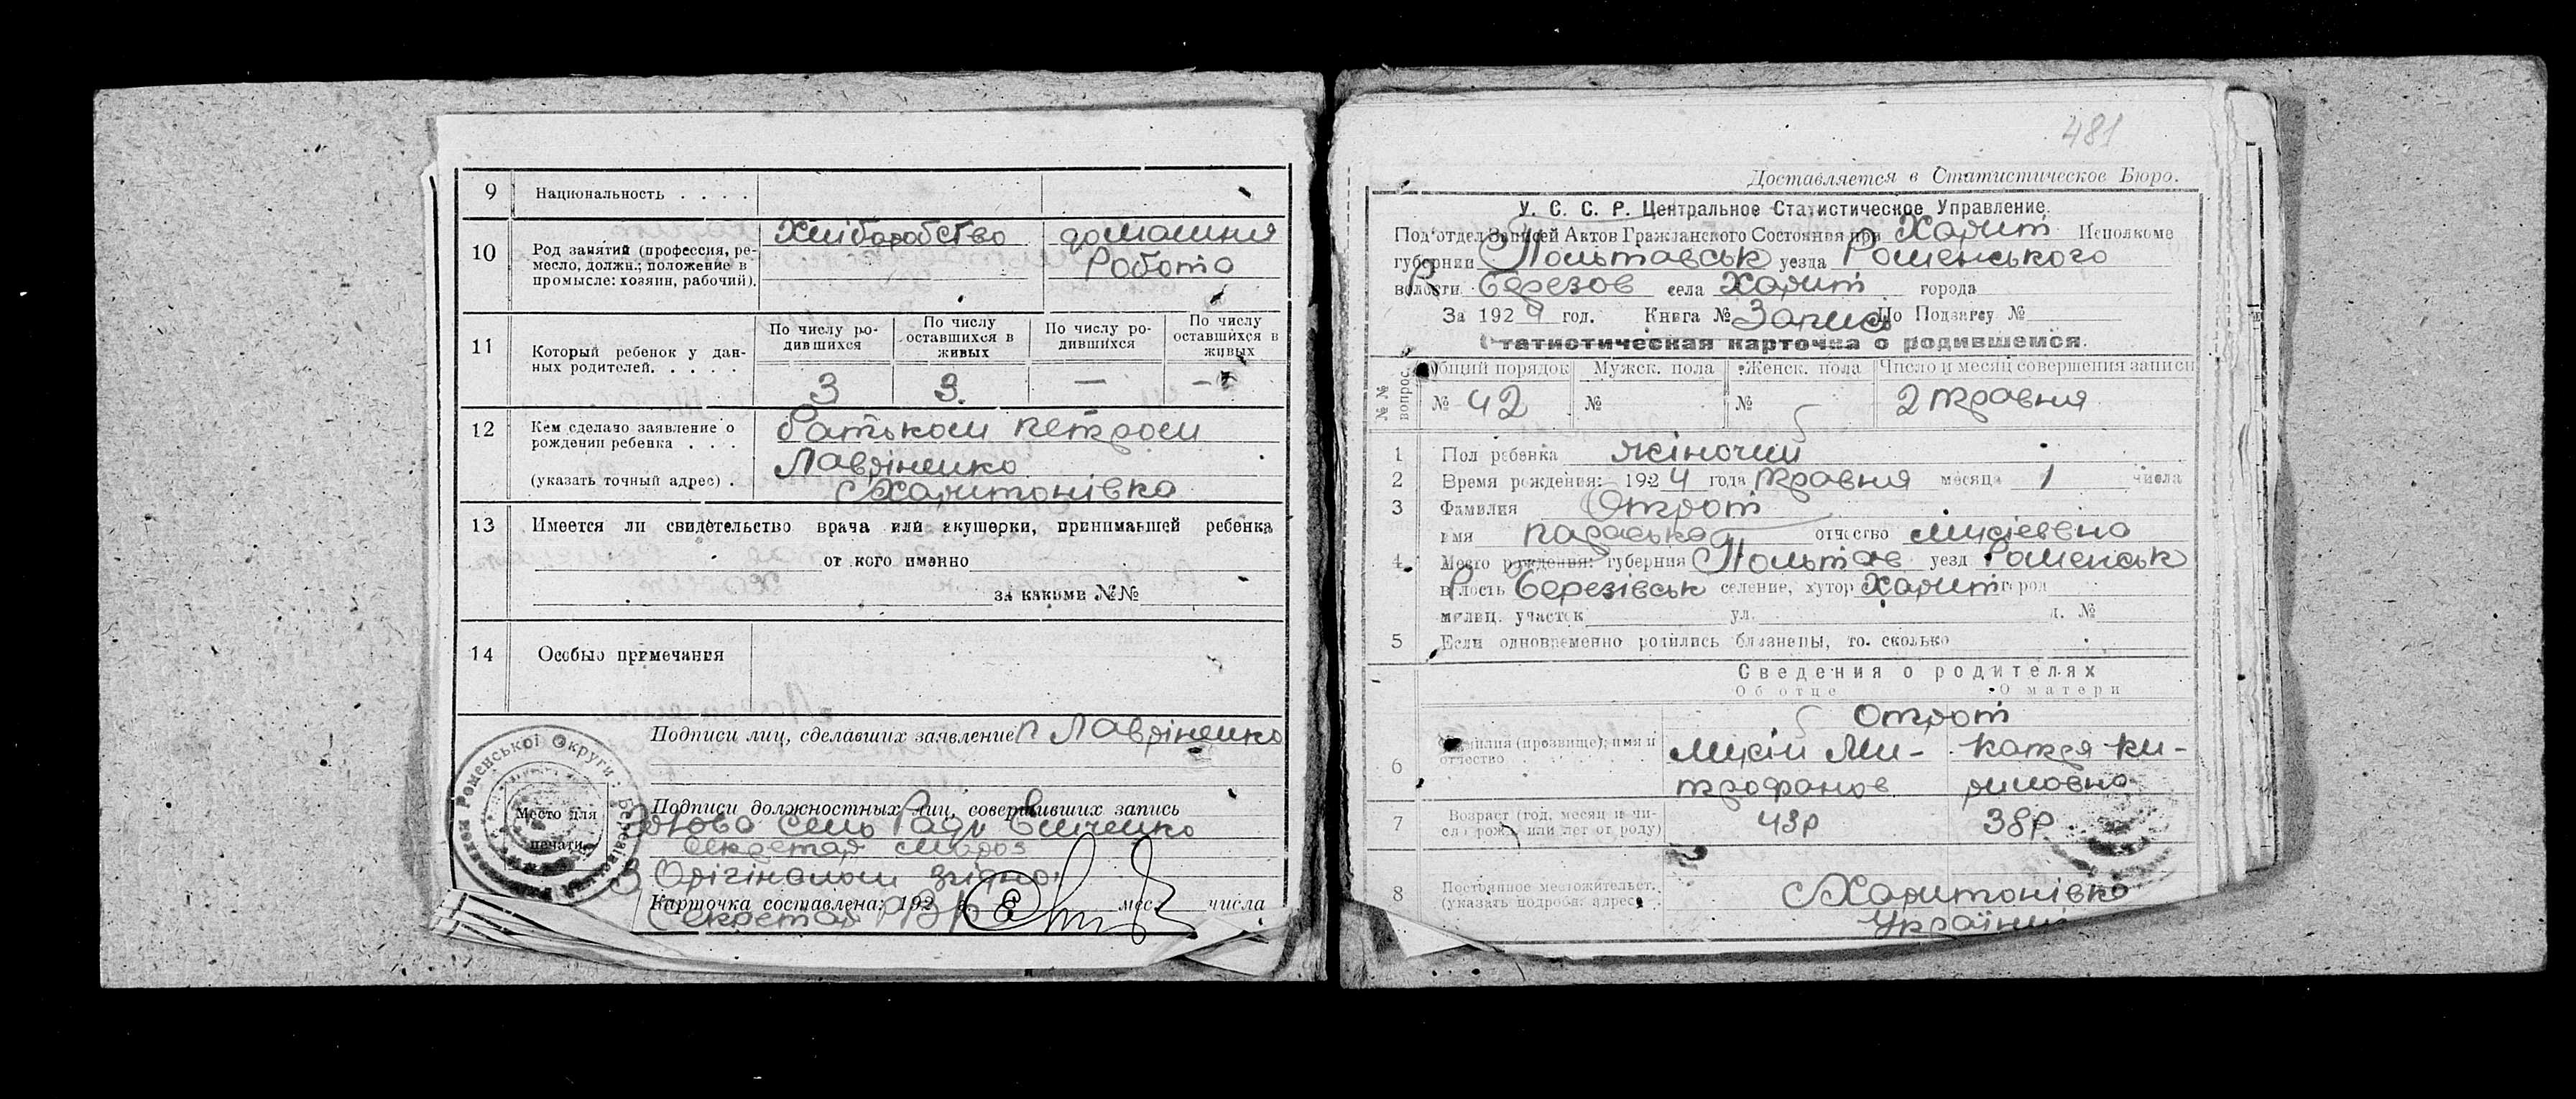 9 Национальность . . . .
10 Род занятий (профессия, ре-
месло, должн.; положение в
промысле: хозяин, рабочий).
Хліборобство
домашня
робота
11 Который ребенок у дан-
ных родителей. . . . .
По числу ро-
дившихся
По числу
оставшихся в
живых
По числу ро-
дившихся
По числу
оставшихся в
живых
3 3. — —
12 Кем сделано заявление о
рождении ребенка . . .
(указать точный адрес) .
батьком Петром
Лавріненко
с Харитонівка
13 Имеется ли свидетельство врача или акушерки, принимавшей ребенка
от кого именно
за какими №№
14 Особые примечания
Подписи лиц, сделавших заявление П Лавріненко
Подписи должностных лиц, совершивших запись
Голова Сель Ради
Секретар Мороз
З Орігіналом згідно:
Карточка составлена: 192 мес. числа
Секретар РВК
Роменської Округи
Место для
печати
481
Доставляется в Статистическое Бюро.
У. С. С. Р. Центральное Статистическое Управление.
Под'отдел Записей Актов Гражданского Состояния при Харит Исполкоме
губернии Польтавськ уезда Роменського
волости Березов села Харит города
За 1924 год. Книга № Запис По Подзагсу №
Статистическая карточка о родившемся.
№№ вопрос.
Общий порядок Мужск. пола Женск. пола Число и месяц совершения записи
№ 42 № № 2 травня
1 Пол ребенка жіночий
2 Время рождения: 1924 года травня месяца 1 числа
3 Фамилия Отрот
имя Параська отчество Мусіевна
4 Место рождения: губерния Польтав уезд Роменськ
волость Березівськ селение, хутор Харит город
милиц. участок ул. д. №
5 Если одновременно родились близнецы, то сколько
Сведения о родителях
Об отце О матери
Отрот
6 Фамилия (прозвище), имя и
отчество
Мусій Ми-
трофанов
Катря Ки-
риловна
7 Возраст (год, месяц и чи-
сло рожд. или лет от роду)
43р 38р
8 Постоянное местожительст.
(указать подробн. адрес)
с Харитонівка
Україн